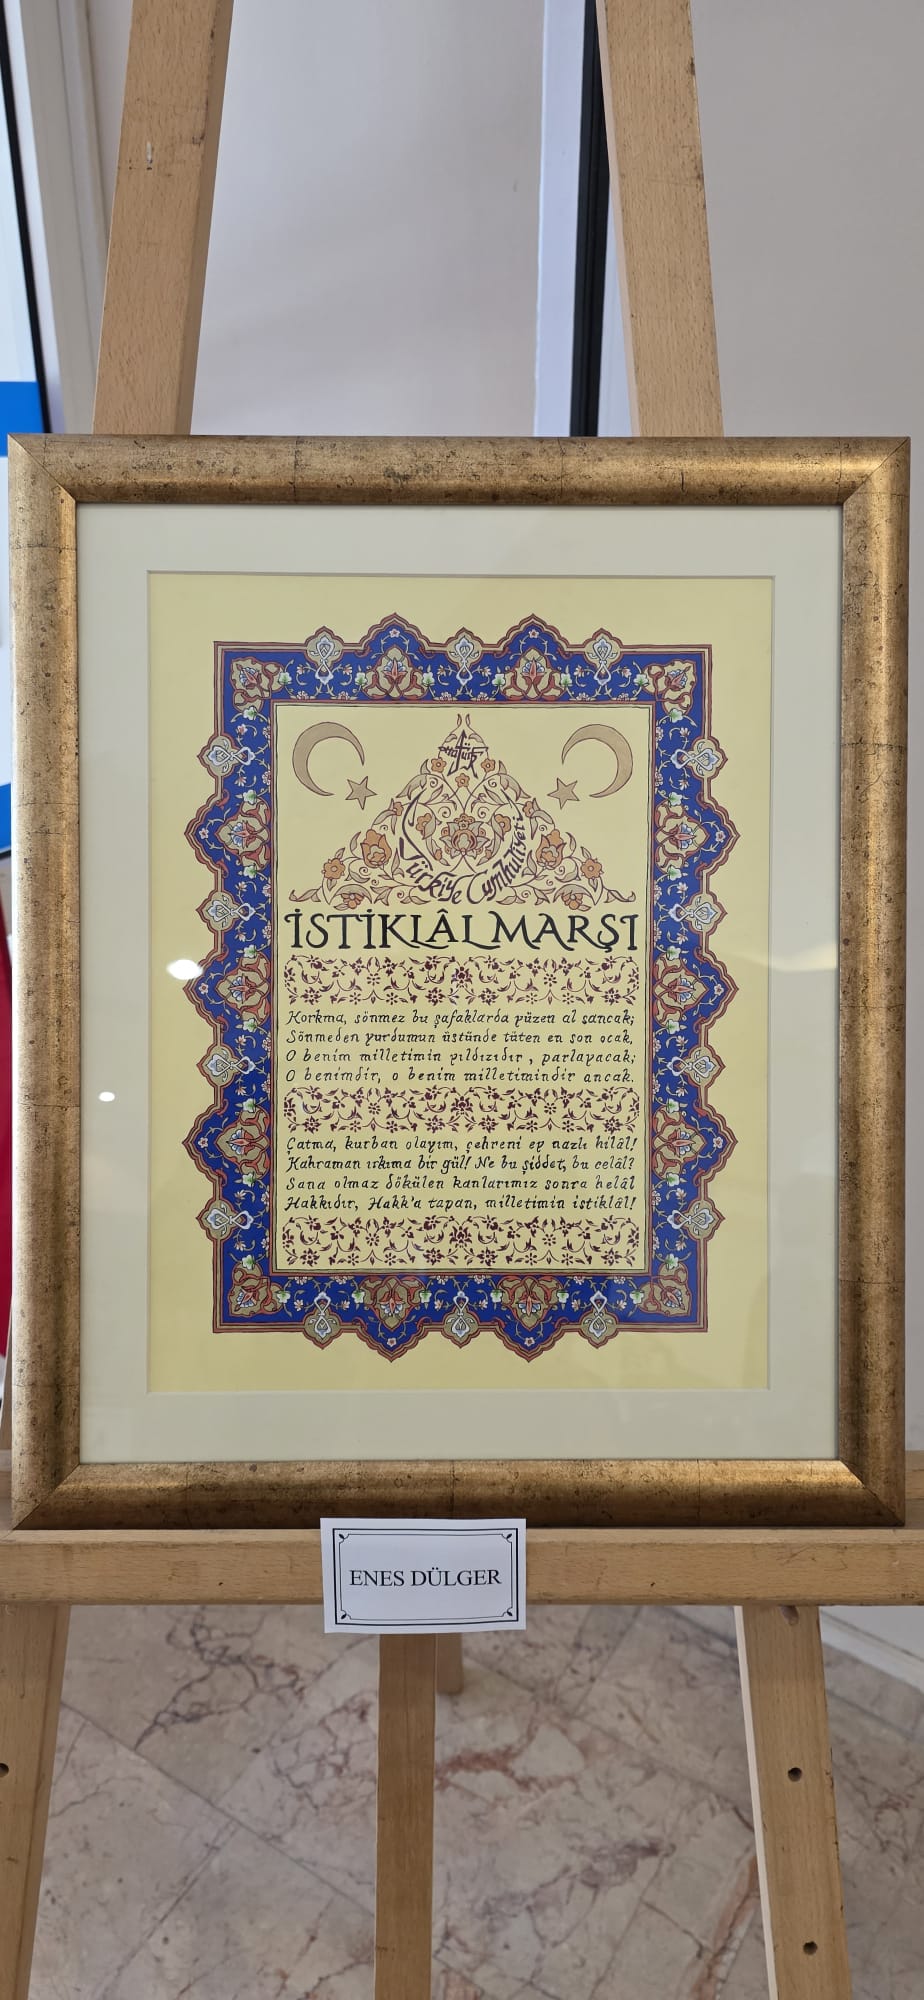 Atatürk
Türkiye Cumhuriyeti
İSTİKLÂL MARŞI
Korkma, sönmez bu şafaklarda yüzen al sancak;
Sönmeden yurdumun üstünde tüten en son ocak.
O benim milletimin yıldızıdır, parlayacak;
O benimdir, o benim milletimindir ancak.
Çatma, kurban olayım, çehreni ey nazlı hilâl!
Kahraman ırkıma bir gül! Ne bu şiddet, bu celâl?
Sana olmaz dökülen kanlarımız sonra helâl
Hakkıdır, Hakk'a tapan, milletimin istiklâl!
ENES DÜLGER